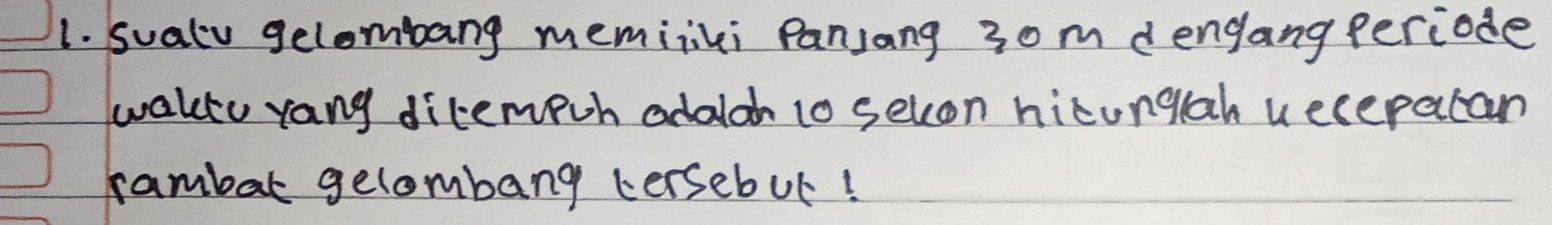 1. Suatu gelombang memiliki Panjang 30 m dengang Periode
waktu yang ditempuh adalah 10 sekon hitunglah kecepatan
rambat gelombang tersebut!